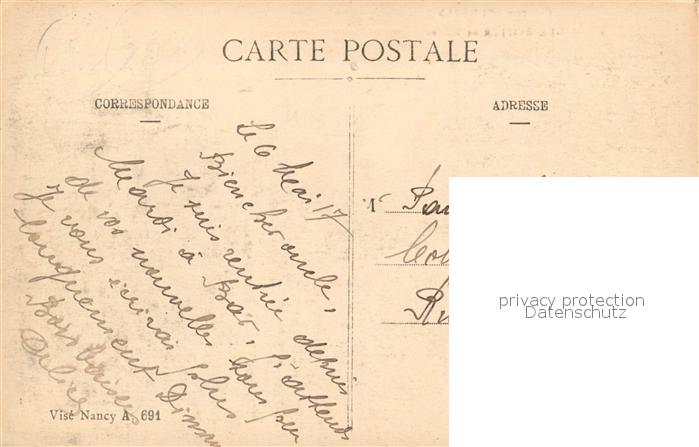 CARTE POSTALE
CORRESPONDANCE
ADRESSE
Le 6 Mai 17
Bien cher oncle,
Je suis rentrée depuis
Mardi à Bar, j'attends
de vos nouvelles sous peu
Je vous écrirai plus
longuement Dim
Bons baisers
M
privacy protection
Datenschutz
Visé Nancy A. 691